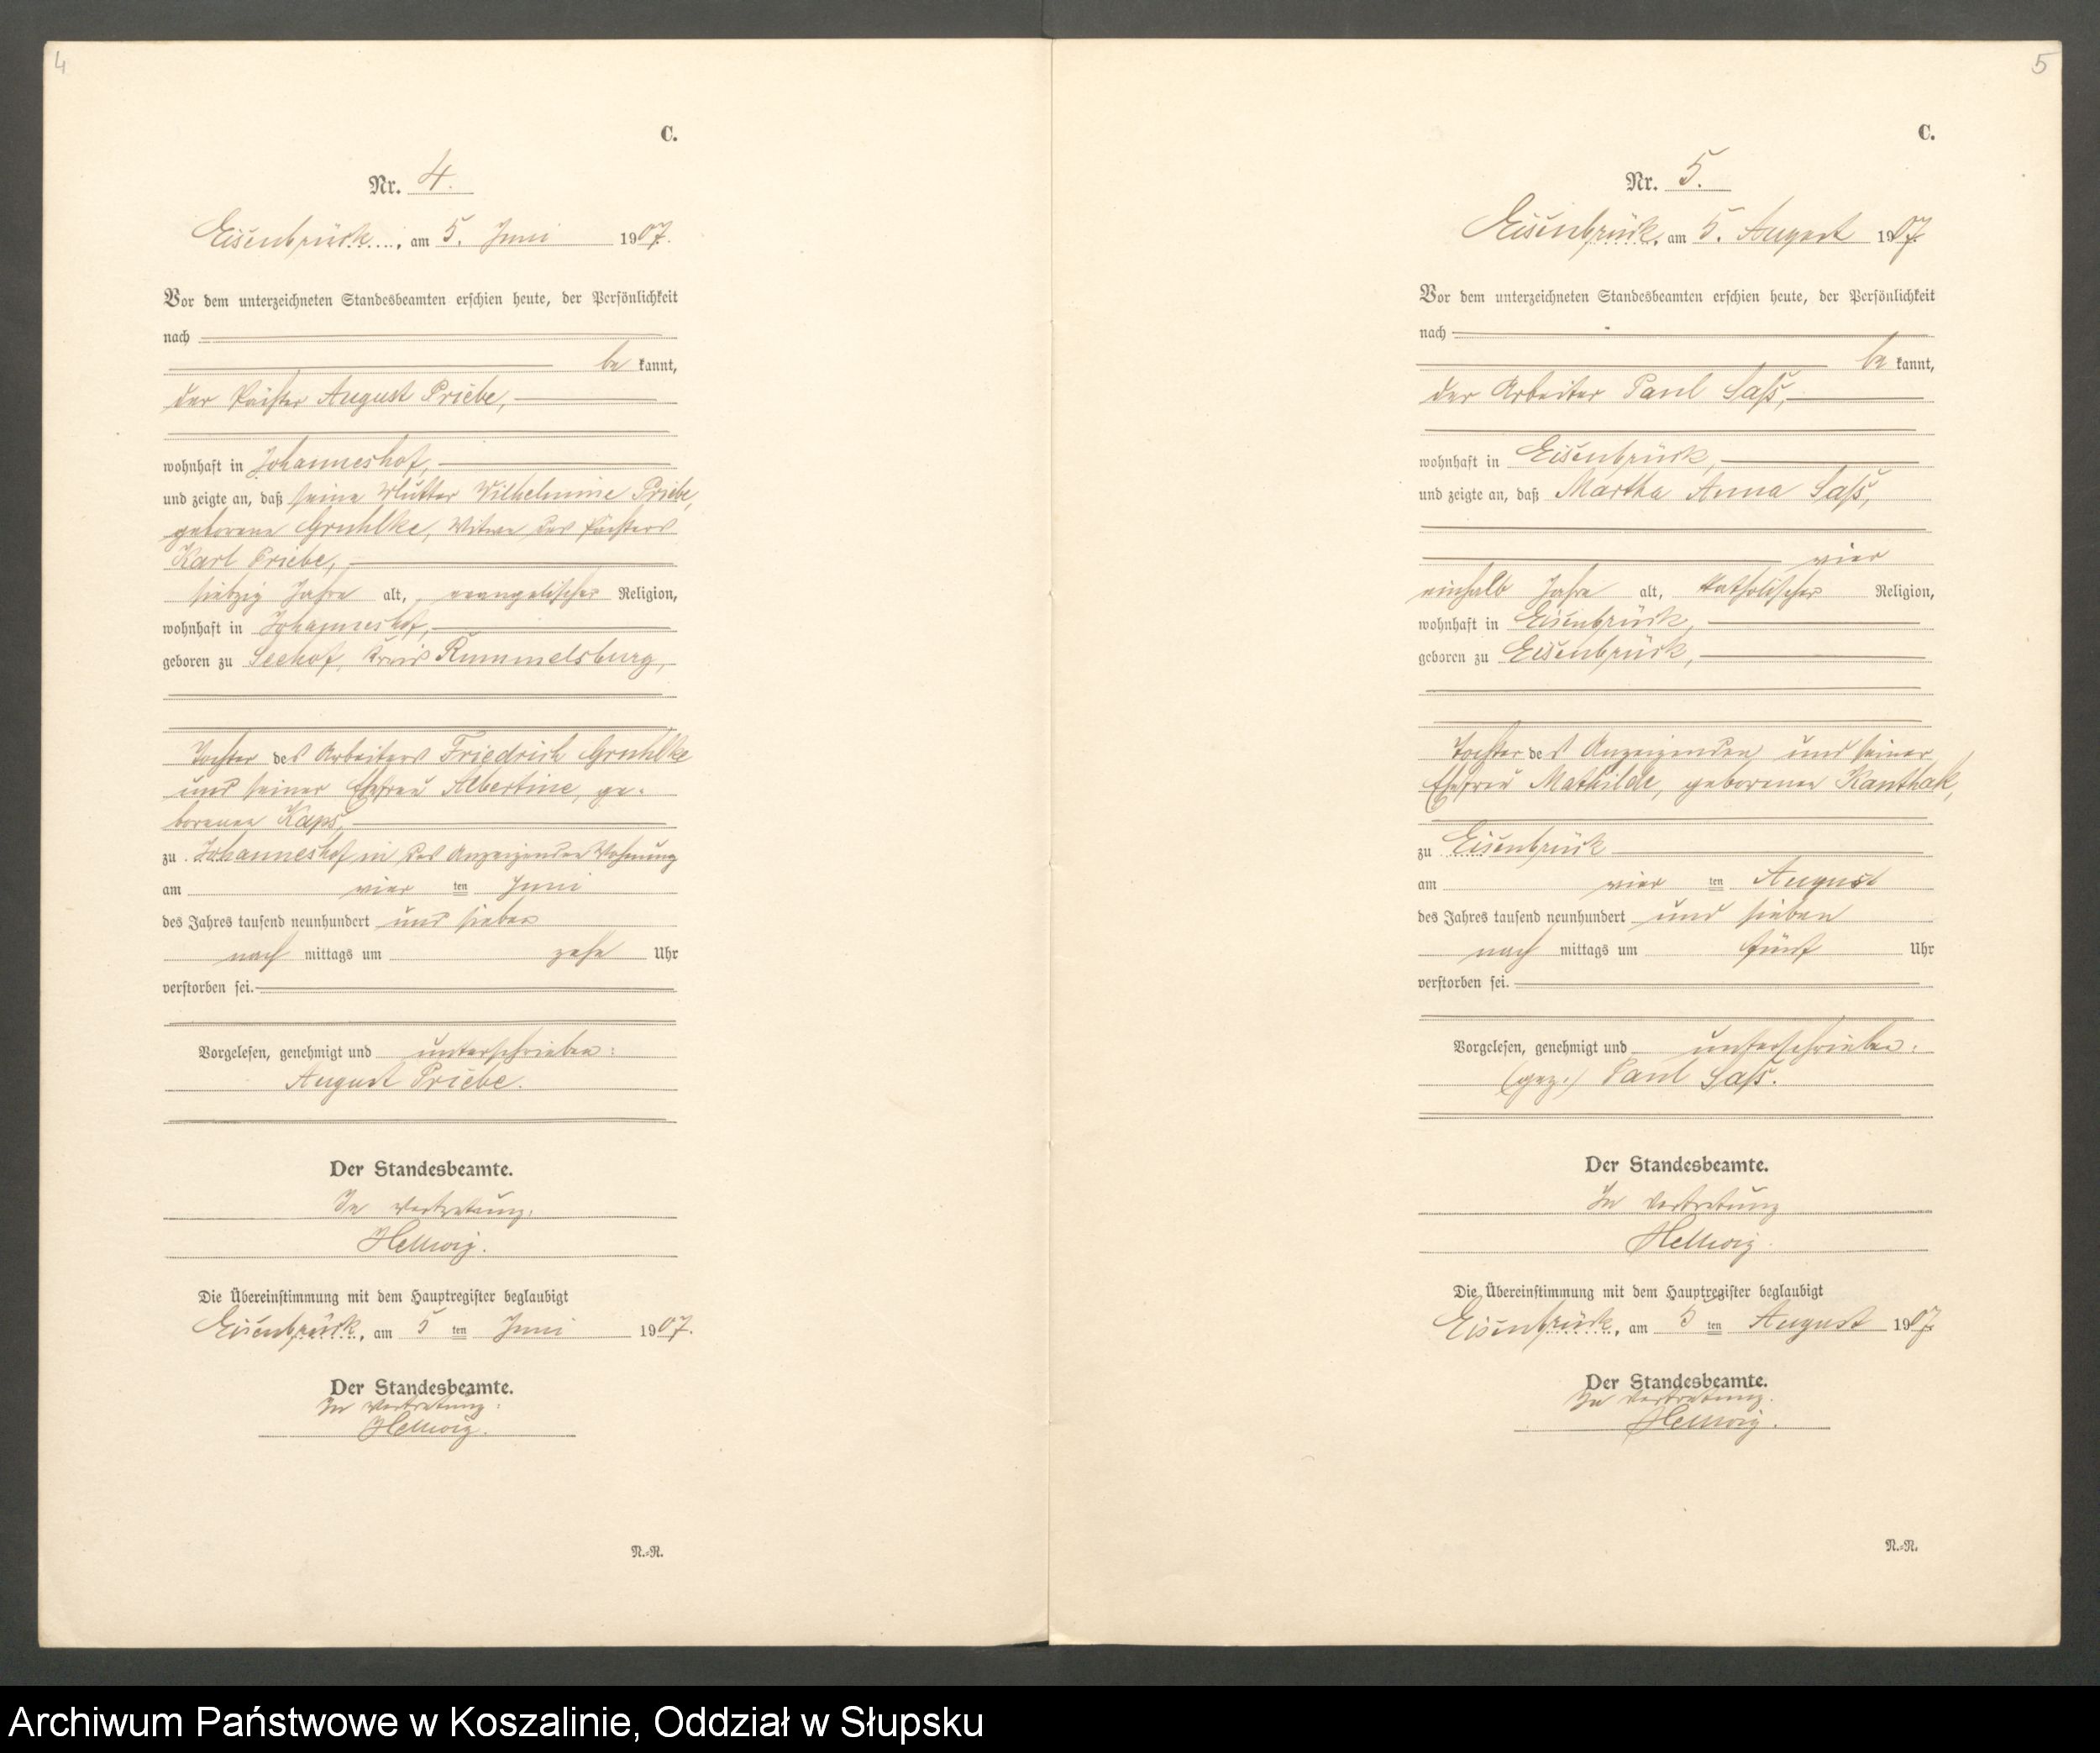 4
C.
Nr. 4.
Eisenbrück, am 5. Juni 1907.
Vor dem unterzeichneten Standesbeamten erschien heute, der Persönlichkeit
nach
be kannt,
der Pächter August Priebe,
wohnhaft in Johanneshof,
und zeigte an, daß seine Mutter Wilhelmine Priebe,
geborene Gruhlke, Witwe des Pächters
Karl Priebe,
siebzig Jahre alt, evangelischer Religion,
wohnhaft in Johanneshof,
geboren zu Seehof, Kreis Rummelsburg,
Tochter des Arbeiters Friedrich Gruhlke
und seiner Ehefrau Albertine, ge-
borenen Kaps,
zu Johanneshof in des Anzeigenden Wohnung
am vier ten Juni
des Jahres tausend neunhundert und sieben
nach mittags um zehn Uhr
verstorben sei.
Vorgelesen, genehmigt und unterschrieben:
August Priebe.
Der Standesbeamte.
In Vertretung:
Hellwig.
Die Übereinstimmung mit dem Hauptregister beglaubigt
Eisenbrück, am 5 ten Juni 1907.
Der Standesbeamte.
In Vertretung:
Hellwig.
N.=N.
5
C.
Nr. 5.
Eisenbrück, am 5. August 1907.
Vor dem unterzeichneten Standesbeamten erschien heute, der Persönlichkeit
nach
be kannt,
der Arbeiter Paul Saß,
wohnhaft in Eisenbrück,
und zeigte an, daß Martha Anna Saß,
vier
einhalb Jahre alt, katholischer Religion,
wohnhaft in Eisenbrück,
geboren zu Eisenbrück,
Tochter des Anzeigenden und seiner
Ehefrau Mathilde, geborenen Kanthak,
zu Eisenbrück
am vier ten August
des Jahres tausend neunhundert und sieben
nach mittags um fünf Uhr
verstorben sei.
Vorgelesen, genehmigt und unterschrieben:
(gez.) Paul Saß.
Der Standesbeamte.
In Vertretung
Hellwig.
Die Übereinstimmung mit dem Hauptregister beglaubigt
Eisenbrück, am 5 ten August 1907
Der Standesbeamte.
In Vertretung.
Hellwig.
N.=N.
Archiwum Państwowe w Koszalinie, Oddział w Słupsku